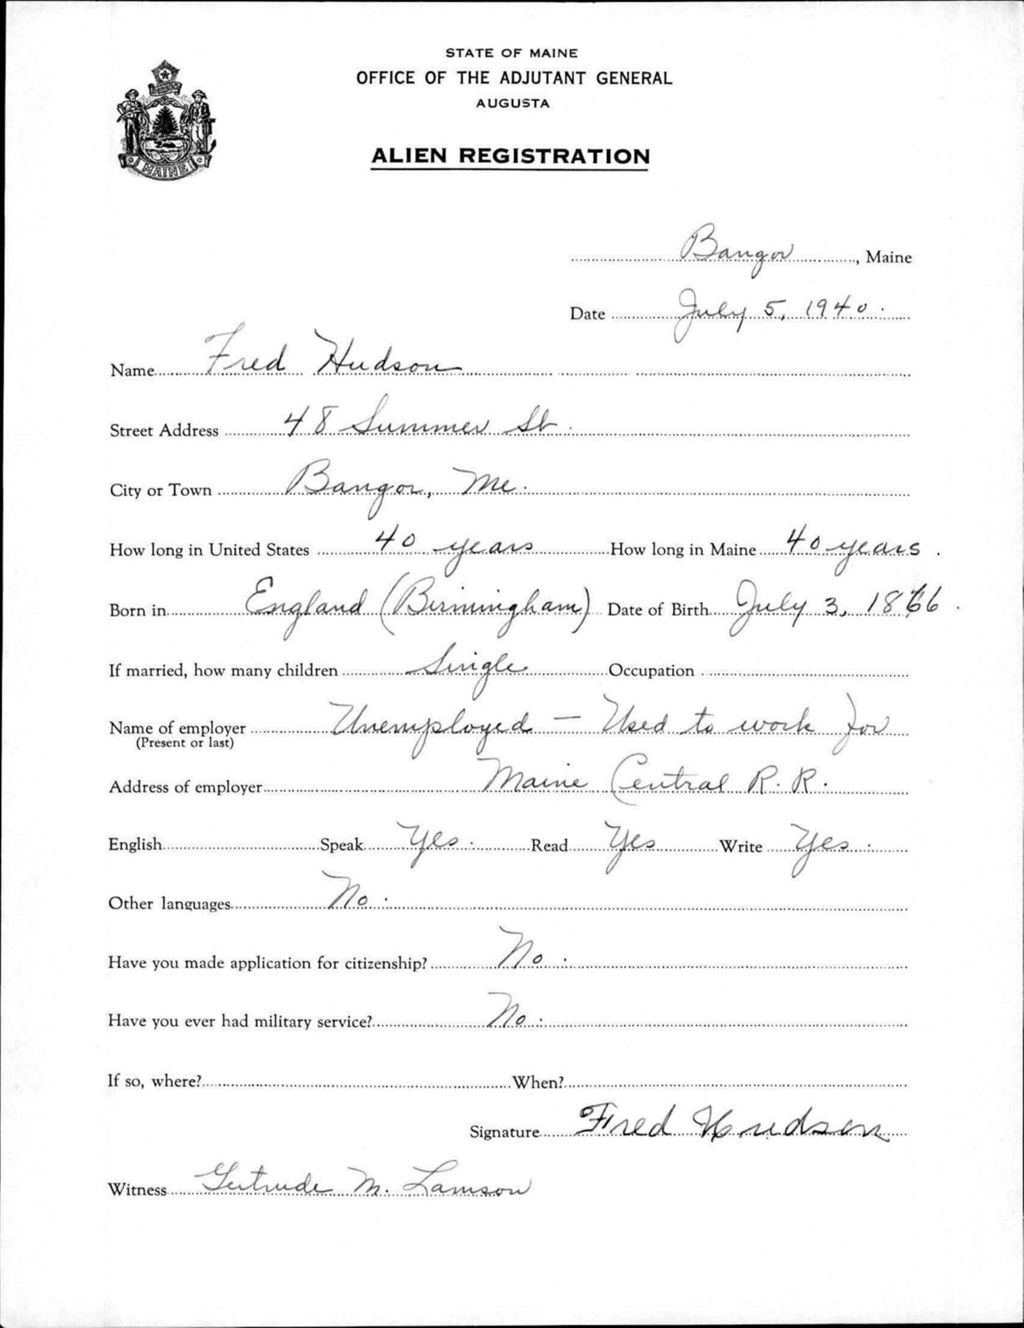 STATE OF MAINE
OFFICE OF THE ADJUTANT GENERAL
AUGUSTA
ALIEN REGISTRATION
MAINE
Bangor, Maine
Date July 5, 1940.
Name Fred Hudson
Street Address 48 Summer St.
City or Town Bangor, Me.
How long in United States 40 years How long in Maine 40 years.
Born in England (Birmingham) Date of Birth July 3, 1866.
If married, how many children Single Occupation
Name of employer Unemployed — Used to work for
(Present or last)
Address of employer Maine Central R. R.
English Speak Yes. Read Yes Write Yes.
Other languages No.
Have you made application for citizenship? No.
Have you ever had military service? No.
If so, where? When?
Signature Fred Hudson
Witness Gertrude M. Lamson